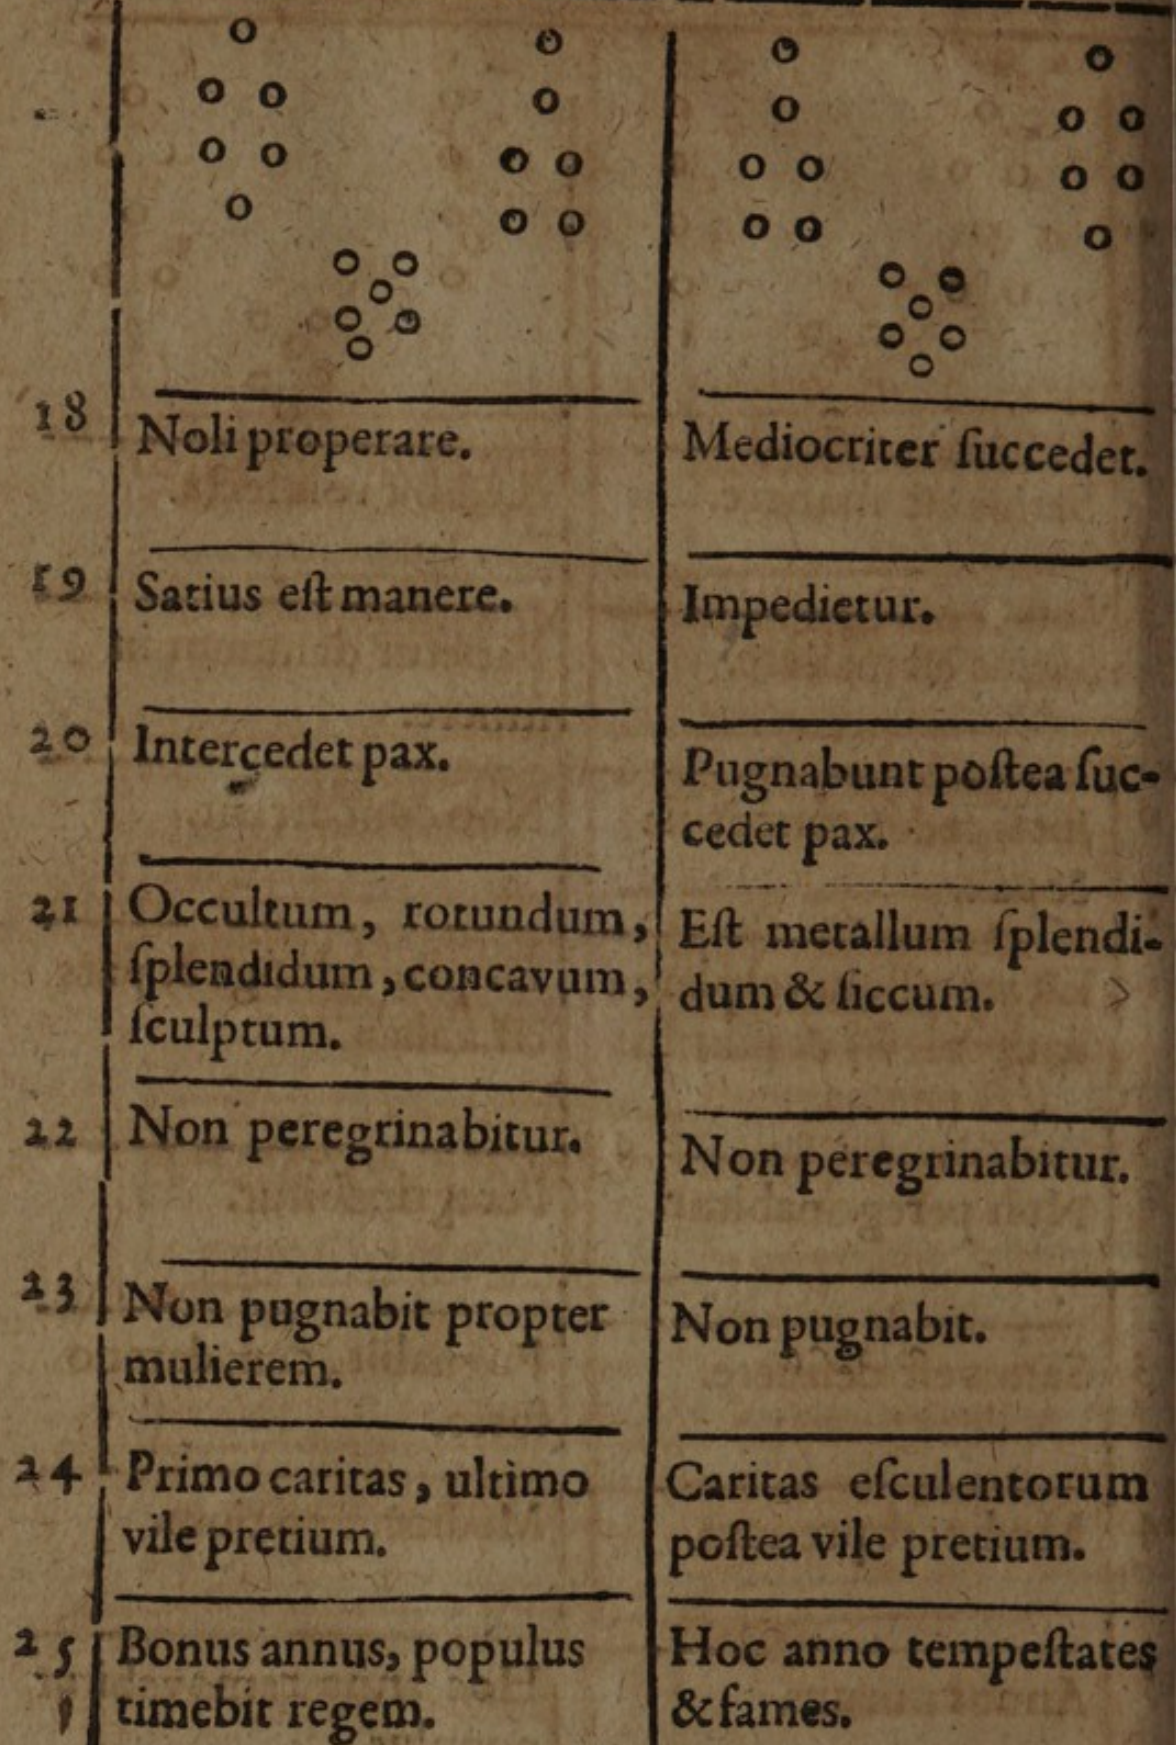 18
Noli properare.
Mediocriter ſuccedet.
19
Satius eſt manere.
Impedietur.
20
Intercedet pax.
Pugnabunt poſtea ſuc-
cedet pax.
21
Occultum, rotundum,
ſplendidum, concavum,
ſculptum.
Eſt metallum ſplendi-
dum & ſiccum.
22
Non peregrinabitur.
Non peregrinabitur.
23
Non pugnabit propter
mulierem.
Non pugnabit.
24
Primo caritas, ultimo
vile pretium.
Caritas eſculentorum
poſtea vile pretium.
25
Bonus annus, populus
timebit regem.
Hoc anno tempeſtates
& fames.